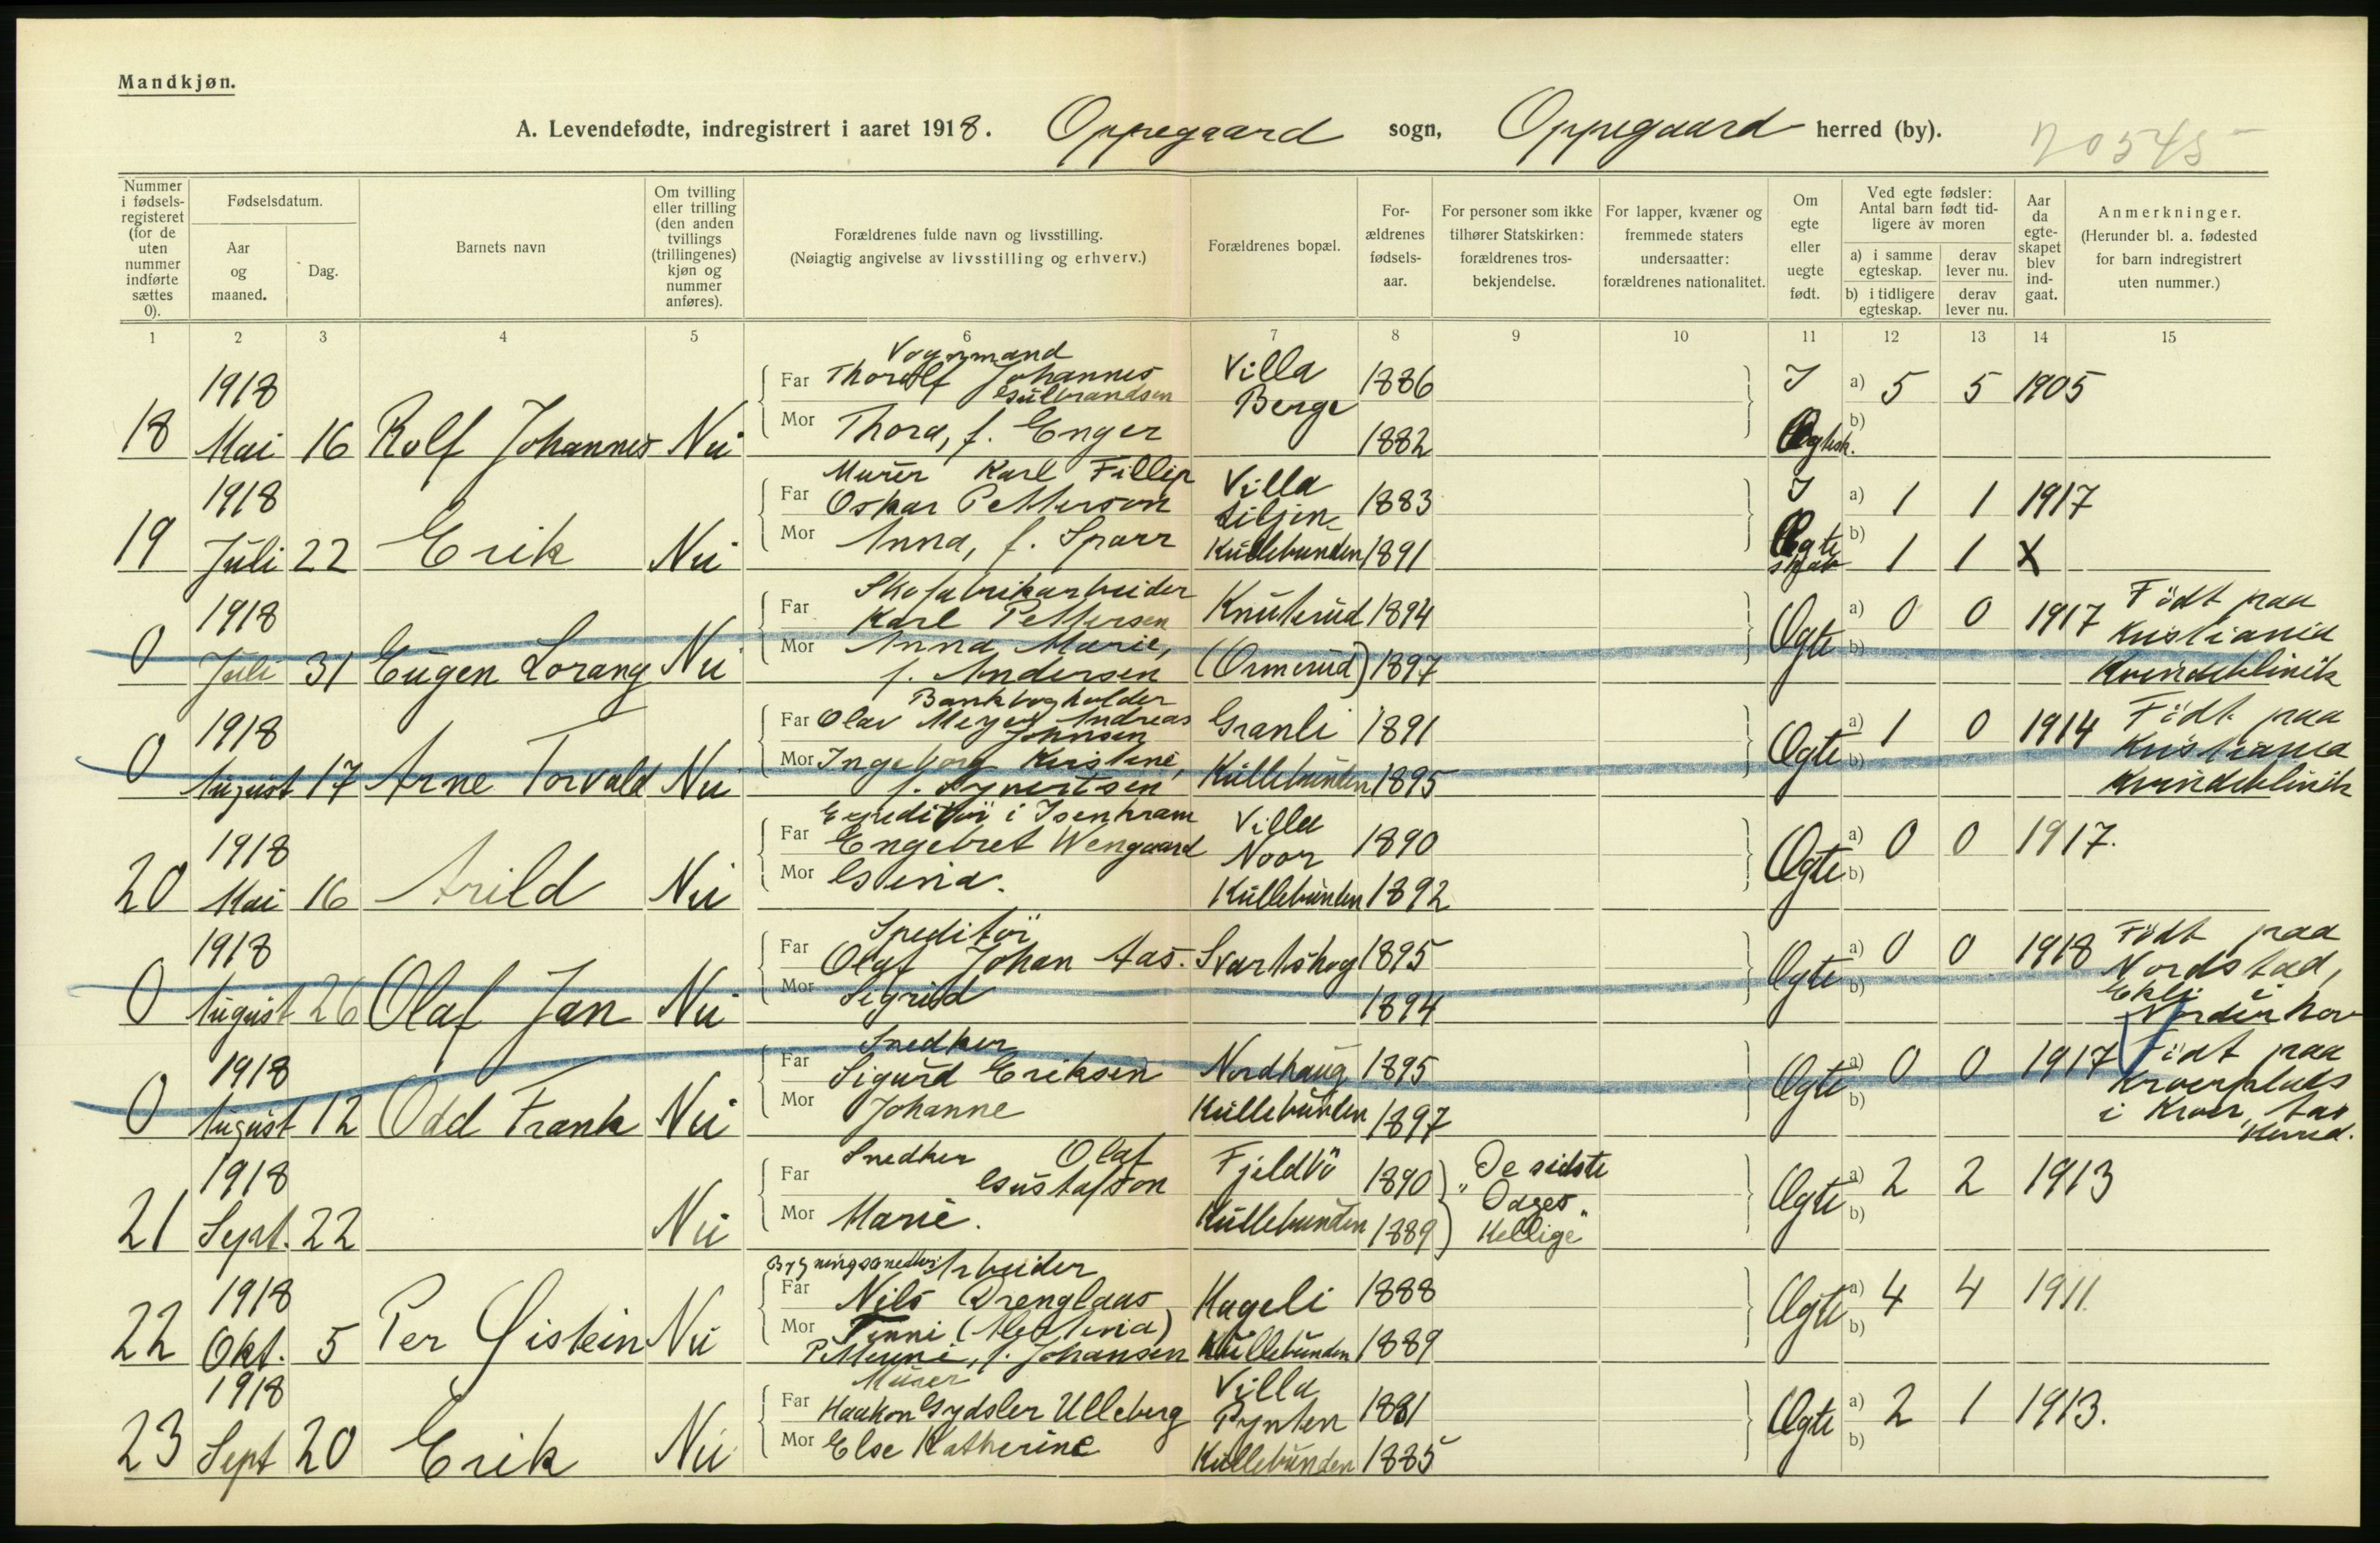 Mandkjøn.
A. Levendefødte, indregistrert i aaret 1918. Oppegaard sogn, Oppegaard herred (by).
20545
Nummer i fødselsregisteret (for de uten nummer indførte sættes 0).
Fødselsdatum.
Aar og maaned.
Dag.
Barnets navn
Om tvilling eller trilling (den anden tvillings (trillingenes) kjøn og nummer anføres).
Forældrenes fulde navn og livsstilling.
(Nøiagtig angivelse av livsstilling og erhverv.)
Forældrenes bopæl.
Forældrenes fødselsaar.
For personer som ikke tilhører Statskirken: forældrenes trosbekjendelse.
For lapper, kvæner og fremmede staters undersaatter: forældrenes nationalitet.
Om egte eller uegte født.
Ved egte fødsler: Antal barn født tidligere av moren
a) i samme egteskap.
derav lever nu.
b) i tidligere egteskap.
derav lever nu.
Aar da egteskapet blev indgaat.
Anmerkninger.
(Herunder bl. a. fødested for barn indregistrert uten nummer.)
1 2 3 4 5 6 7 8 9 10 11 12 13 14 15
Vognmand
1918 Far Thorolf Johannes Gulbrandsen Villa 1886 I a) 5 5 1905
18 Mai 16 Rolf Johannes Nei Mor Thora, f. Enger Berge 1882 Egtesk. b)
Murer Karl Fillip
1918 Far Oskar Petterson Villa Liljen 1883 I a) 1 1 1917
19 Juli 22 Erik Nei Mor Anna, f. Sparr Kullebunden 1891 Egteskab b) 1 1 X
Skofabrikarbeider
1918 Far Karl Pettersen Knuterud 1894 Egte a) 0 0 1917 Født paa Kristiania
0 Juli 31 Eugen Lorang Nei Mor Anna Marie, f. Andersen (Ormerud) 1897 b) Kvindeklinik
Bankbogholder
1918 Far Olav Meyer Andreas Johnsen Granli 1891 Egte a) 1 0 1914 Født paa Kristiania
0 August 17 Arne Torvald Nei Mor Ingeborg Kristine, f. Syvertsen Kullebunden 1895 b) Kvindeklinik
Expeditør i Isenkram
1918 Far Engebret Wengaard Villa Noor 1890 Egte a) 0 0 1917.
20 Mai 16 Arild Nei Mor Gina. Kullebunden 1892 b)
Speditør
1918 Far Olaf Johan Aas. Svartskog 1895 Egte a) 0 0 1918 Født paa Nordstad,
0 August 26 Olaf Jan Nei Mor Sigrid 1894 b) Ekli i Norderhov
Snedker
1918 Far Sigurd Eriksen Nordhaug 1895 Egte a) 0 0 1917 Født paa Kroerplads
0 August 12 Odd Frank Nei Mor Johanne Kullebunden 1897 b) i Kroer, Aas Herred.
Snedker Olaf
1918 Far Gustafson Fjeldbo 1890 "De sidste Egte a) 2 2 1913
21 Sept. 22 Nei Mor Marie. Kullebunden 1889 Dages Hellige" b)
Bygningssnedker Arbeider
1918 Far Nils Drenglaas Hageli 1888 Egte a) 4 4 1911.
22 Okt. 5 Per Øistein Nei Mor Tinni Petterine, f. Johansen Kullebunden 1889 b)
Murer
1918 Far Haakon Gydsler Ulleberg Villa Pynten 1881 Egte a) 2 1 1913.
23 Sept 20 Erik Nei Mor Else Katherine Kullebunden 1885 b)